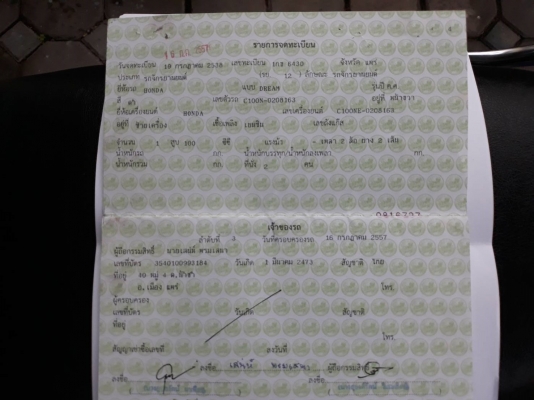 18 ก.ค. 2557
รายการจดทะเบียน
วันจดทะเบียน 18 กรกฎาคม 2538 เลขทะเบียน 6430 จังหวัด แพร่
ประเภท รถจักรยานยนต์ 12 ลักษณะ รถจักรยานยนต์
ยี่ห้อรถ HONDA แบบ DREAM รุ่นปี ค.ศ.
สี ดำ เลขตัวรถ C100N-0208163 อยู่ที่
ยี่ห้อเครื่องยนต์ HONDA เลขเครื่องยนต์ C100NE-0208163
อยู่ที่ ซ้ายเครื่อง เชื้อเพลิง เบนซิน เลขถังแก๊ส
จำนวน 1 สูบ 100 ซีซี แรงม้า - เพลา 2 ล้อ ยาง 2 เส้น
น้ำหนักรถ กก. น้ำหนักบรรทุก/น้ำหนักลงเพลา กก.
น้ำหนักรวม กก. ที่นั่ง 2 คน
เจ้าของรถ
ลำดับที่ 3 วันที่ครอบครองรถ 18 กรกฎาคม 2557
ผู้ถือกรรมสิทธิ์
เลขที่บัตร วันเกิด 1 มีนาคม 2473 สัญชาติ ไทย
ที่อยู่ 40 หมู่ 4
อ. เมือง แพร่ โทร.
ผู้ครอบครอง
เลขที่บัตร วันเกิด สัญชาติ
ที่อยู่
โทร.
สัญญาเช่าซื้อเลขที่ ลงวันที่
ลงชื่อ ผู้ถือกรรมสิทธิ์
ลงชื่อ ลงชื่อ